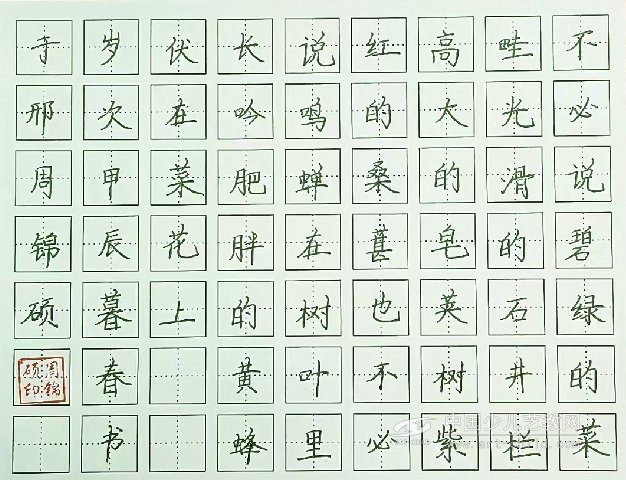 不必说碧绿的菜
畦光滑的石井栏
高大的皂荚树紫
红的桑葚也不必
说鸣蝉在树叶里
长吟肥胖的黄蜂
伏在菜花上
岁次甲辰暮春书
于邢周锦硕
周锦硕印
中国少儿艺教网